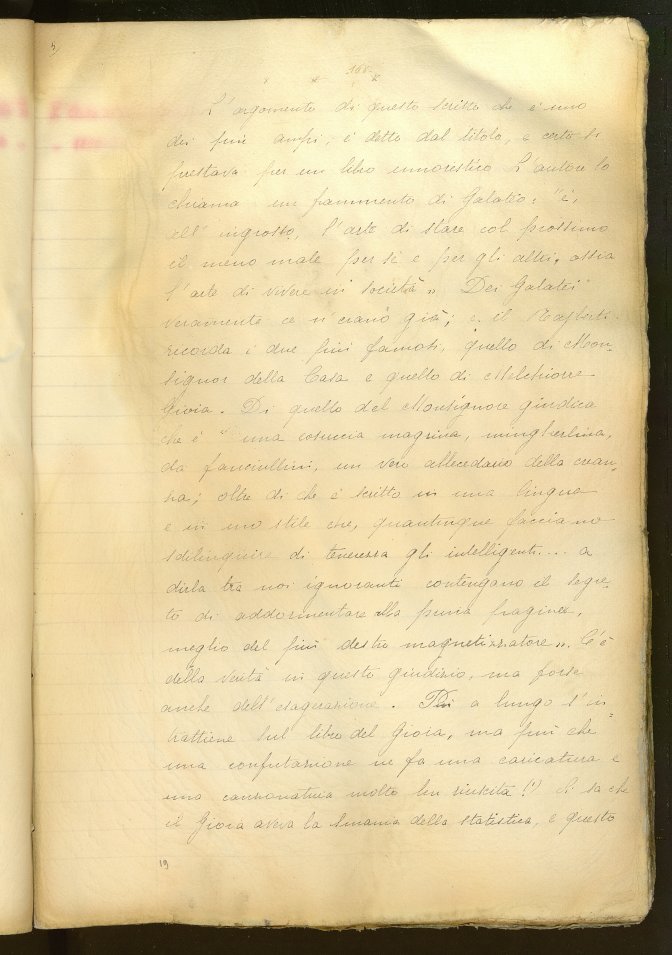 5
165
* * *
L'argomento di questo scritto che è uno
dei più ampi, è detto dal titolo, e certo si
prestava per un libro umorestico L'autore lo
chiama un frammento di Galateo: "è,
all'ingrosso, l'arte di stare col prossimo
il meno male per sè e per gli altri, ossia
l'arte di vivere in società". Dei Galatei
veramente ce n'erano già; e il
ricorda i due più famosi, quello di Mon-
signor della Casa e quello di Melchiorre
Gioia. Di quello del Monsignore giudica
che è "una cosuccia magrina, mingherlina,
da fanciullini, un vero abbecedario della crean-
za; oltre di che è scritto in una lingua
e in uno stile che, quantunque facciano
sdilinquire di tenerezza gli intelligenti.... a
dirla tra noi ignoranti contengano il segre-
to di addormentare alla prima pagina,
meglio del più destro magnetizzatore". C'è
della verità in questo giudizio, ma forse
anche dell'esagerazione. Più a lungo s'in-
trattiene sul libro del Gioia, ma più che
una confutazione ne fa una caricatura e
una canzonatura molto ben riuscita (1) Si sa che
il Gioia aveva la smania della statistica, e questo
19